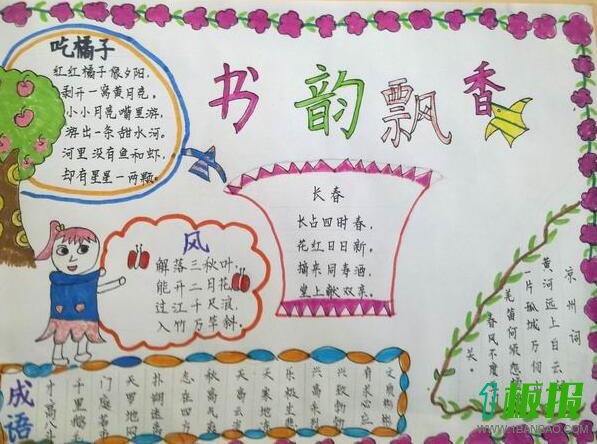 书韵飘香
吃橘子
红红橘子像夕阳，
剥开一窝黄月亮。
小小月亮嘴里游，
游出一条甜水河。
河里没有鱼和虾，
却有星星一两颗。
长春
长占四时春，
花红日日新。
摘来同寿酒，
堂上献双亲。
风
解落三秋叶，
能开二月花。
过江千尺浪，
入竹万竿斜。
凉州词
黄河远上白云
一片孤城万仞
羌笛何须怨
春风不度
关
成语
兴致勃勃
兴高采烈
乐极生悲
天寒地冻
天高云淡
秋高气爽
志在四方
扑朔迷离
天罗地网
门庭若市
千里
才高八斗
1板报
WWW.1BANBAO.COM